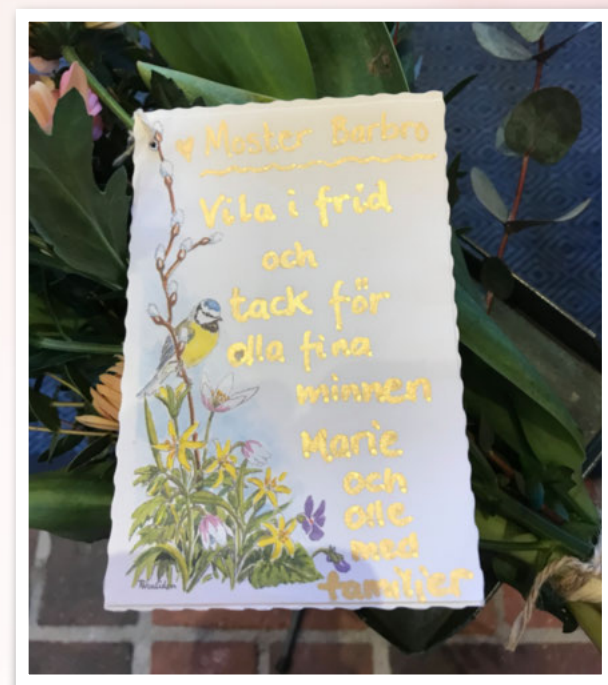 ♥ Moster Barbro
Vila i frid
och
tack för
alla fina
minnen
Marie
och
Olle
med
familjer